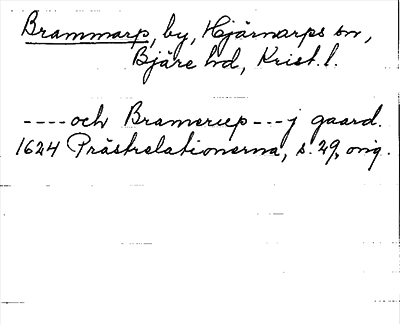 Brammarp, by, Hjärnarps sn,
Bjäre hd, Krist. l.
----och Brameruep---j gaard.
1624 Prästrelationerna, s. 29, orig.